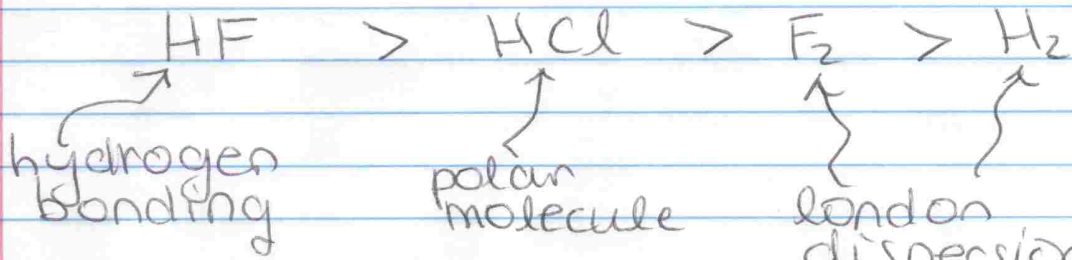 HF > HCl > F₂ > H₂
hydrogen bonding
polar molecule
london dispersion